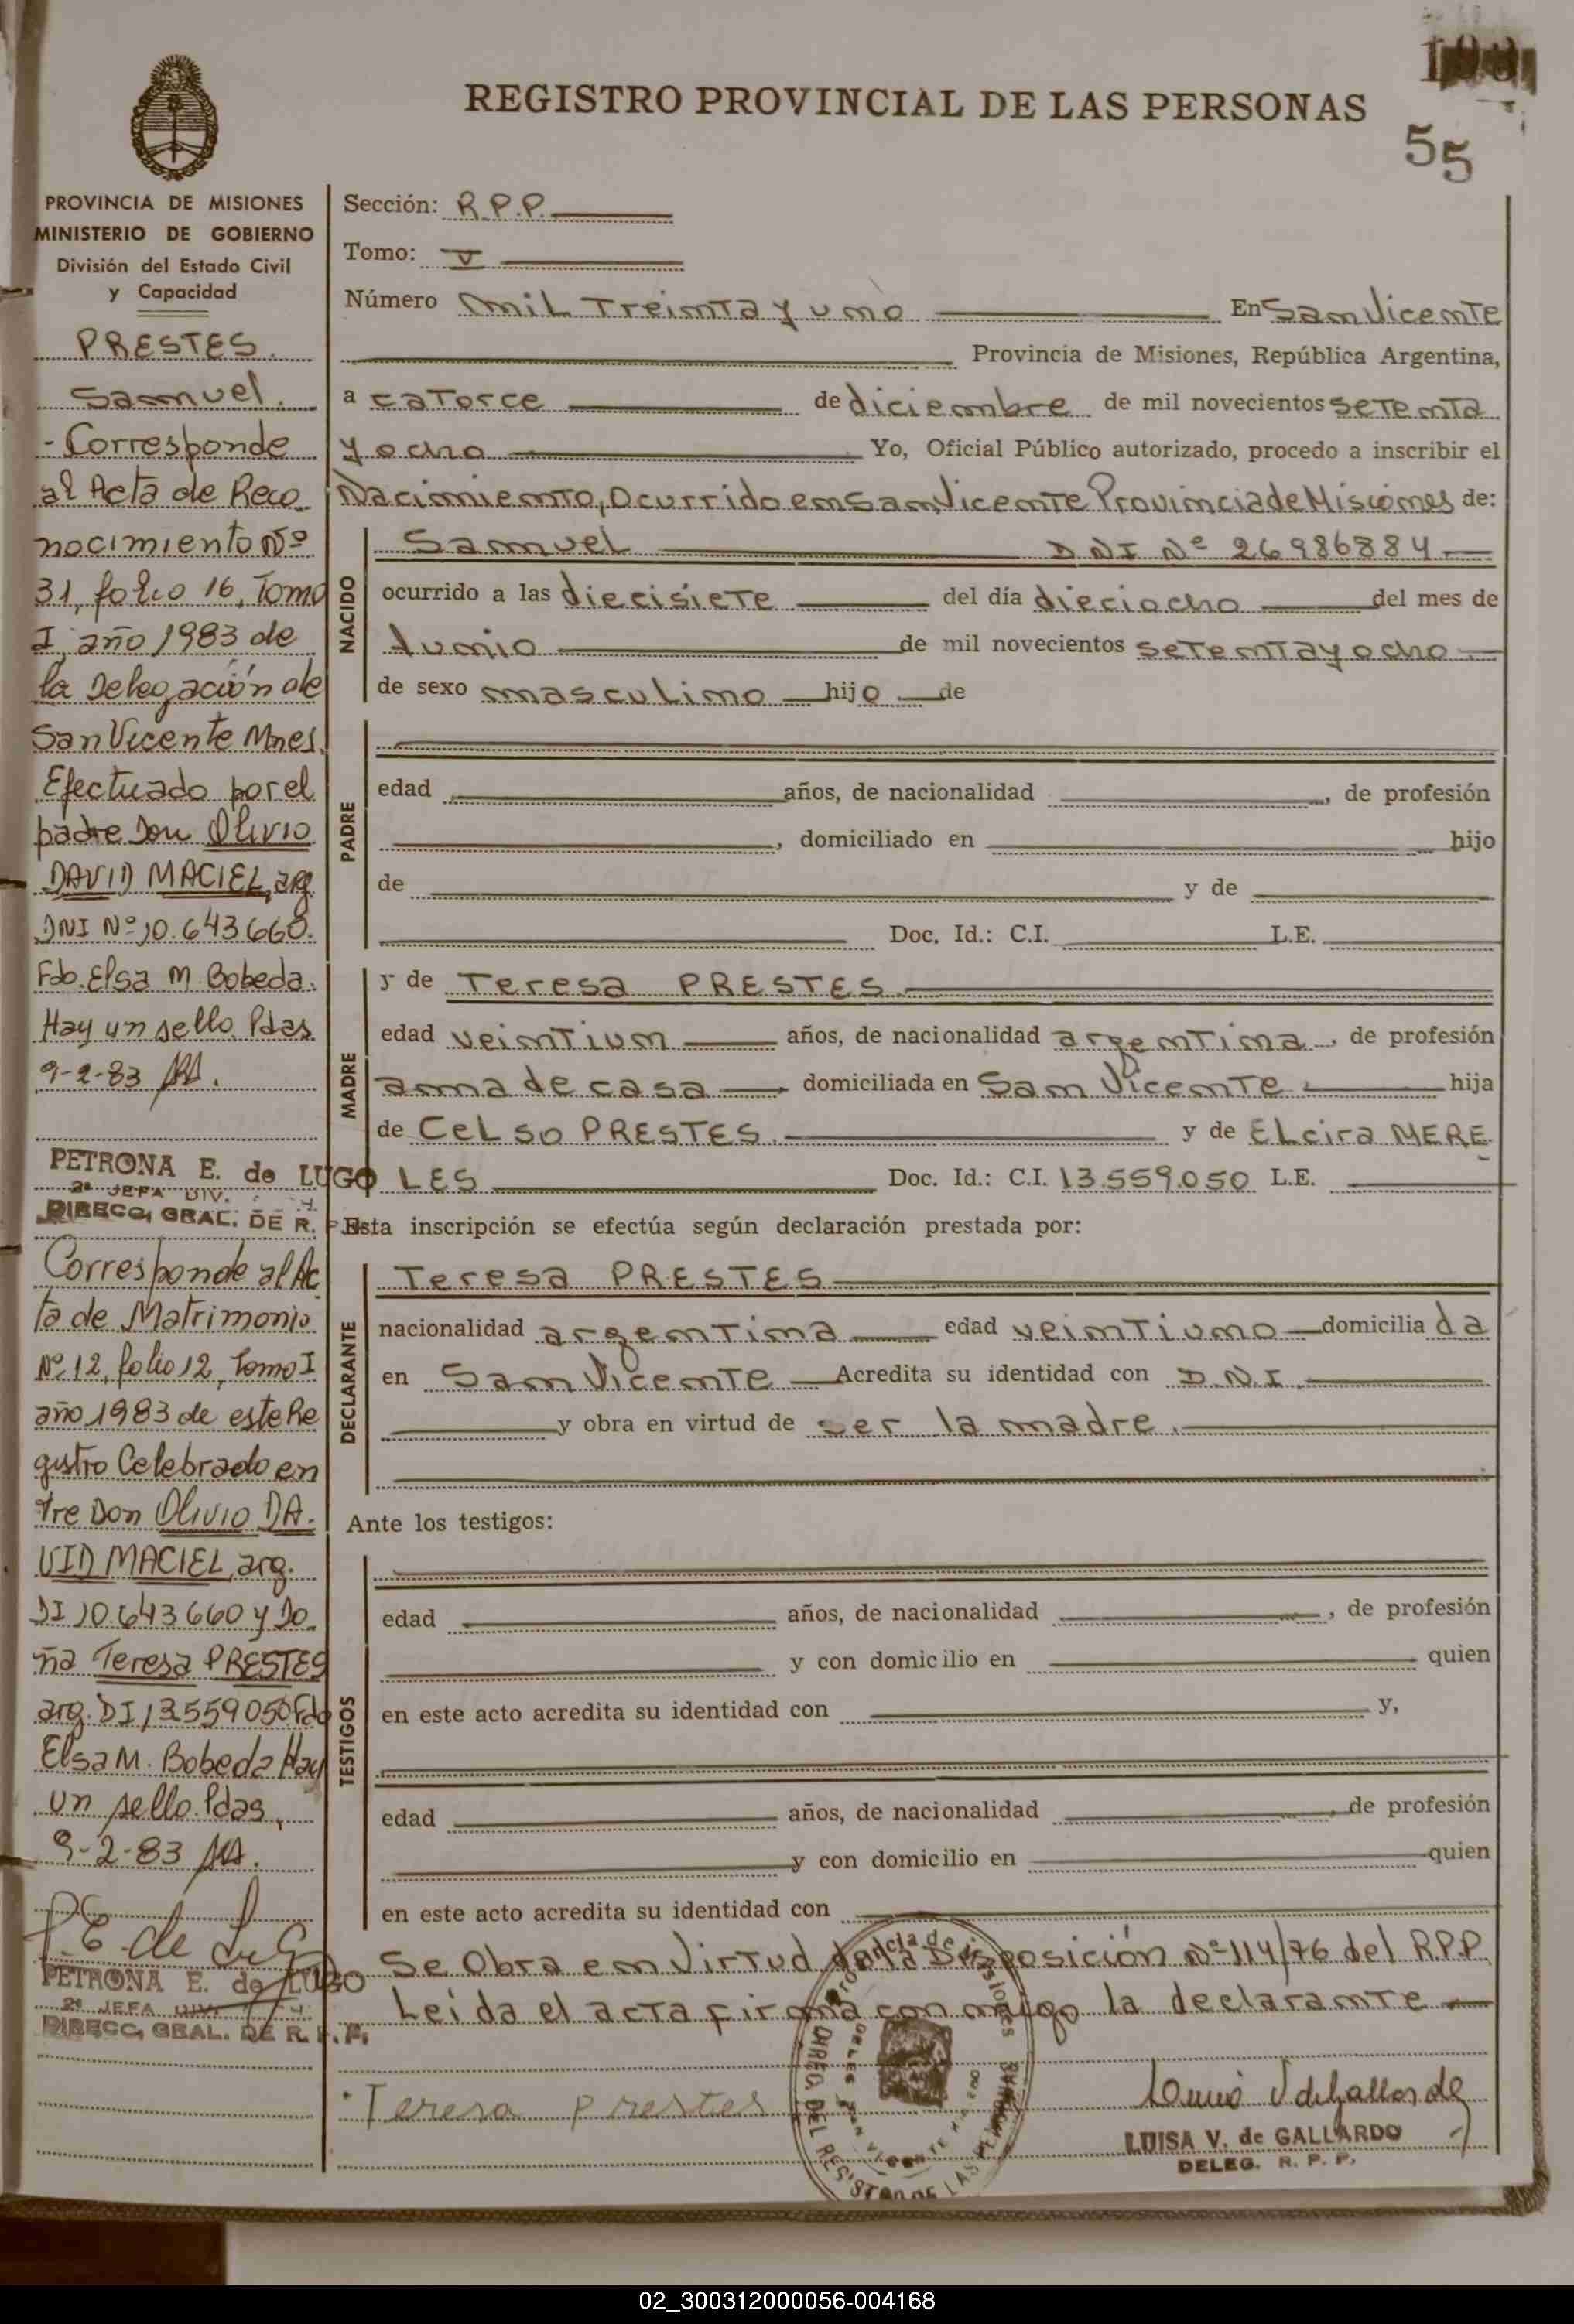 REGISTRO PROVINCIAL DE LAS PERSONAS
55
PROVINCIA DE MISIONES
MINISTERIO DE GOBIERNO
División del Estado Civil
y Capacidad
PRESTES.
Samuel.
- Corresponde
al Acta de Reco
nocimiento Nº
31, folio 16, Tomo
I, año 1983 de
la Delegación de
San Vicente Mnes.
Efectuado por el
padre Don Olivio
DAVID MACIEL, arg.
DNI Nº 10.643660.
Fdo. Elsa M. Bobeda.
Hay un sello. Pdas
9-2-83
PETRONA E. de LUGO
2ª JEFA DIV.
DIRECC. GRAL. DE R. P. P.
Corresponde al Ac
ta de Matrimonio
Nº 12, folio 12, Tomo I
año 1983 de este Re
gistro Celebrado en
tre Don Olivio DA-
VID MACIEL, arg.
DI 10.643660 y Do
ña Teresa PRESTES
arg. DI 13559050 Fdo
Elsa M. Bobeda Hay
un sello. Pdas,
9-2-83
P.E. de Lugo
PETRONA E. de LUGO
2ª JEFA DIV.
DIRECC. GRAL. DE R. P. P.
Sección: R.P.P.
Tomo: V
Número mil Treinta y uno En San Vicente
Provincia de Misiones, República Argentina,
a catorce de diciembre de mil novecientos setenta
y ocho Yo, Oficial Público autorizado, procedo a inscribir el
Nacimiento, Ocurrido en San Vicente Provincia de Misiones de:
NACIDO
Samuel DNI Nº 26986884
ocurrido a las diecisiete del día dieciocho del mes de
Junio de mil novecientos setenta y ocho
de sexo masculino hijo de
PADRE
edad años, de nacionalidad , de profesión
, domiciliado en hijo
de y de
Doc. Id.: C.I. L.E.
MADRE
y de Teresa PRESTES
edad veintiun años, de nacionalidad argentina, de profesión
ama de casa domiciliada en San Vicente hija
de Celso PRESTES y de ELcira MERE
LES Doc. Id.: C.I. 13.559.050 L.E.
Esta inscripción se efectúa según declaración prestada por:
DECLARANTE
Teresa PRESTES
nacionalidad argentina edad veintiuno domicilia da
en San Vicente Acredita su identidad con D.N.I.
y obra en virtud de ser la madre.
Ante los testigos:
TESTIGOS
edad años, de nacionalidad , de profesión
y con domicilio en quien
en este acto acredita su identidad con y,
edad años, de nacionalidad , de profesión
y con domicilio en quien
en este acto acredita su identidad con
Se Obra en Virtud de la Disposición Nº 114/76 del R.P.P
Leída el acta firma con migo la declarante
Teresa Prestes
LUISA V. de GALLARDO
DELEG. R. P. P.
02_300312000056-004168